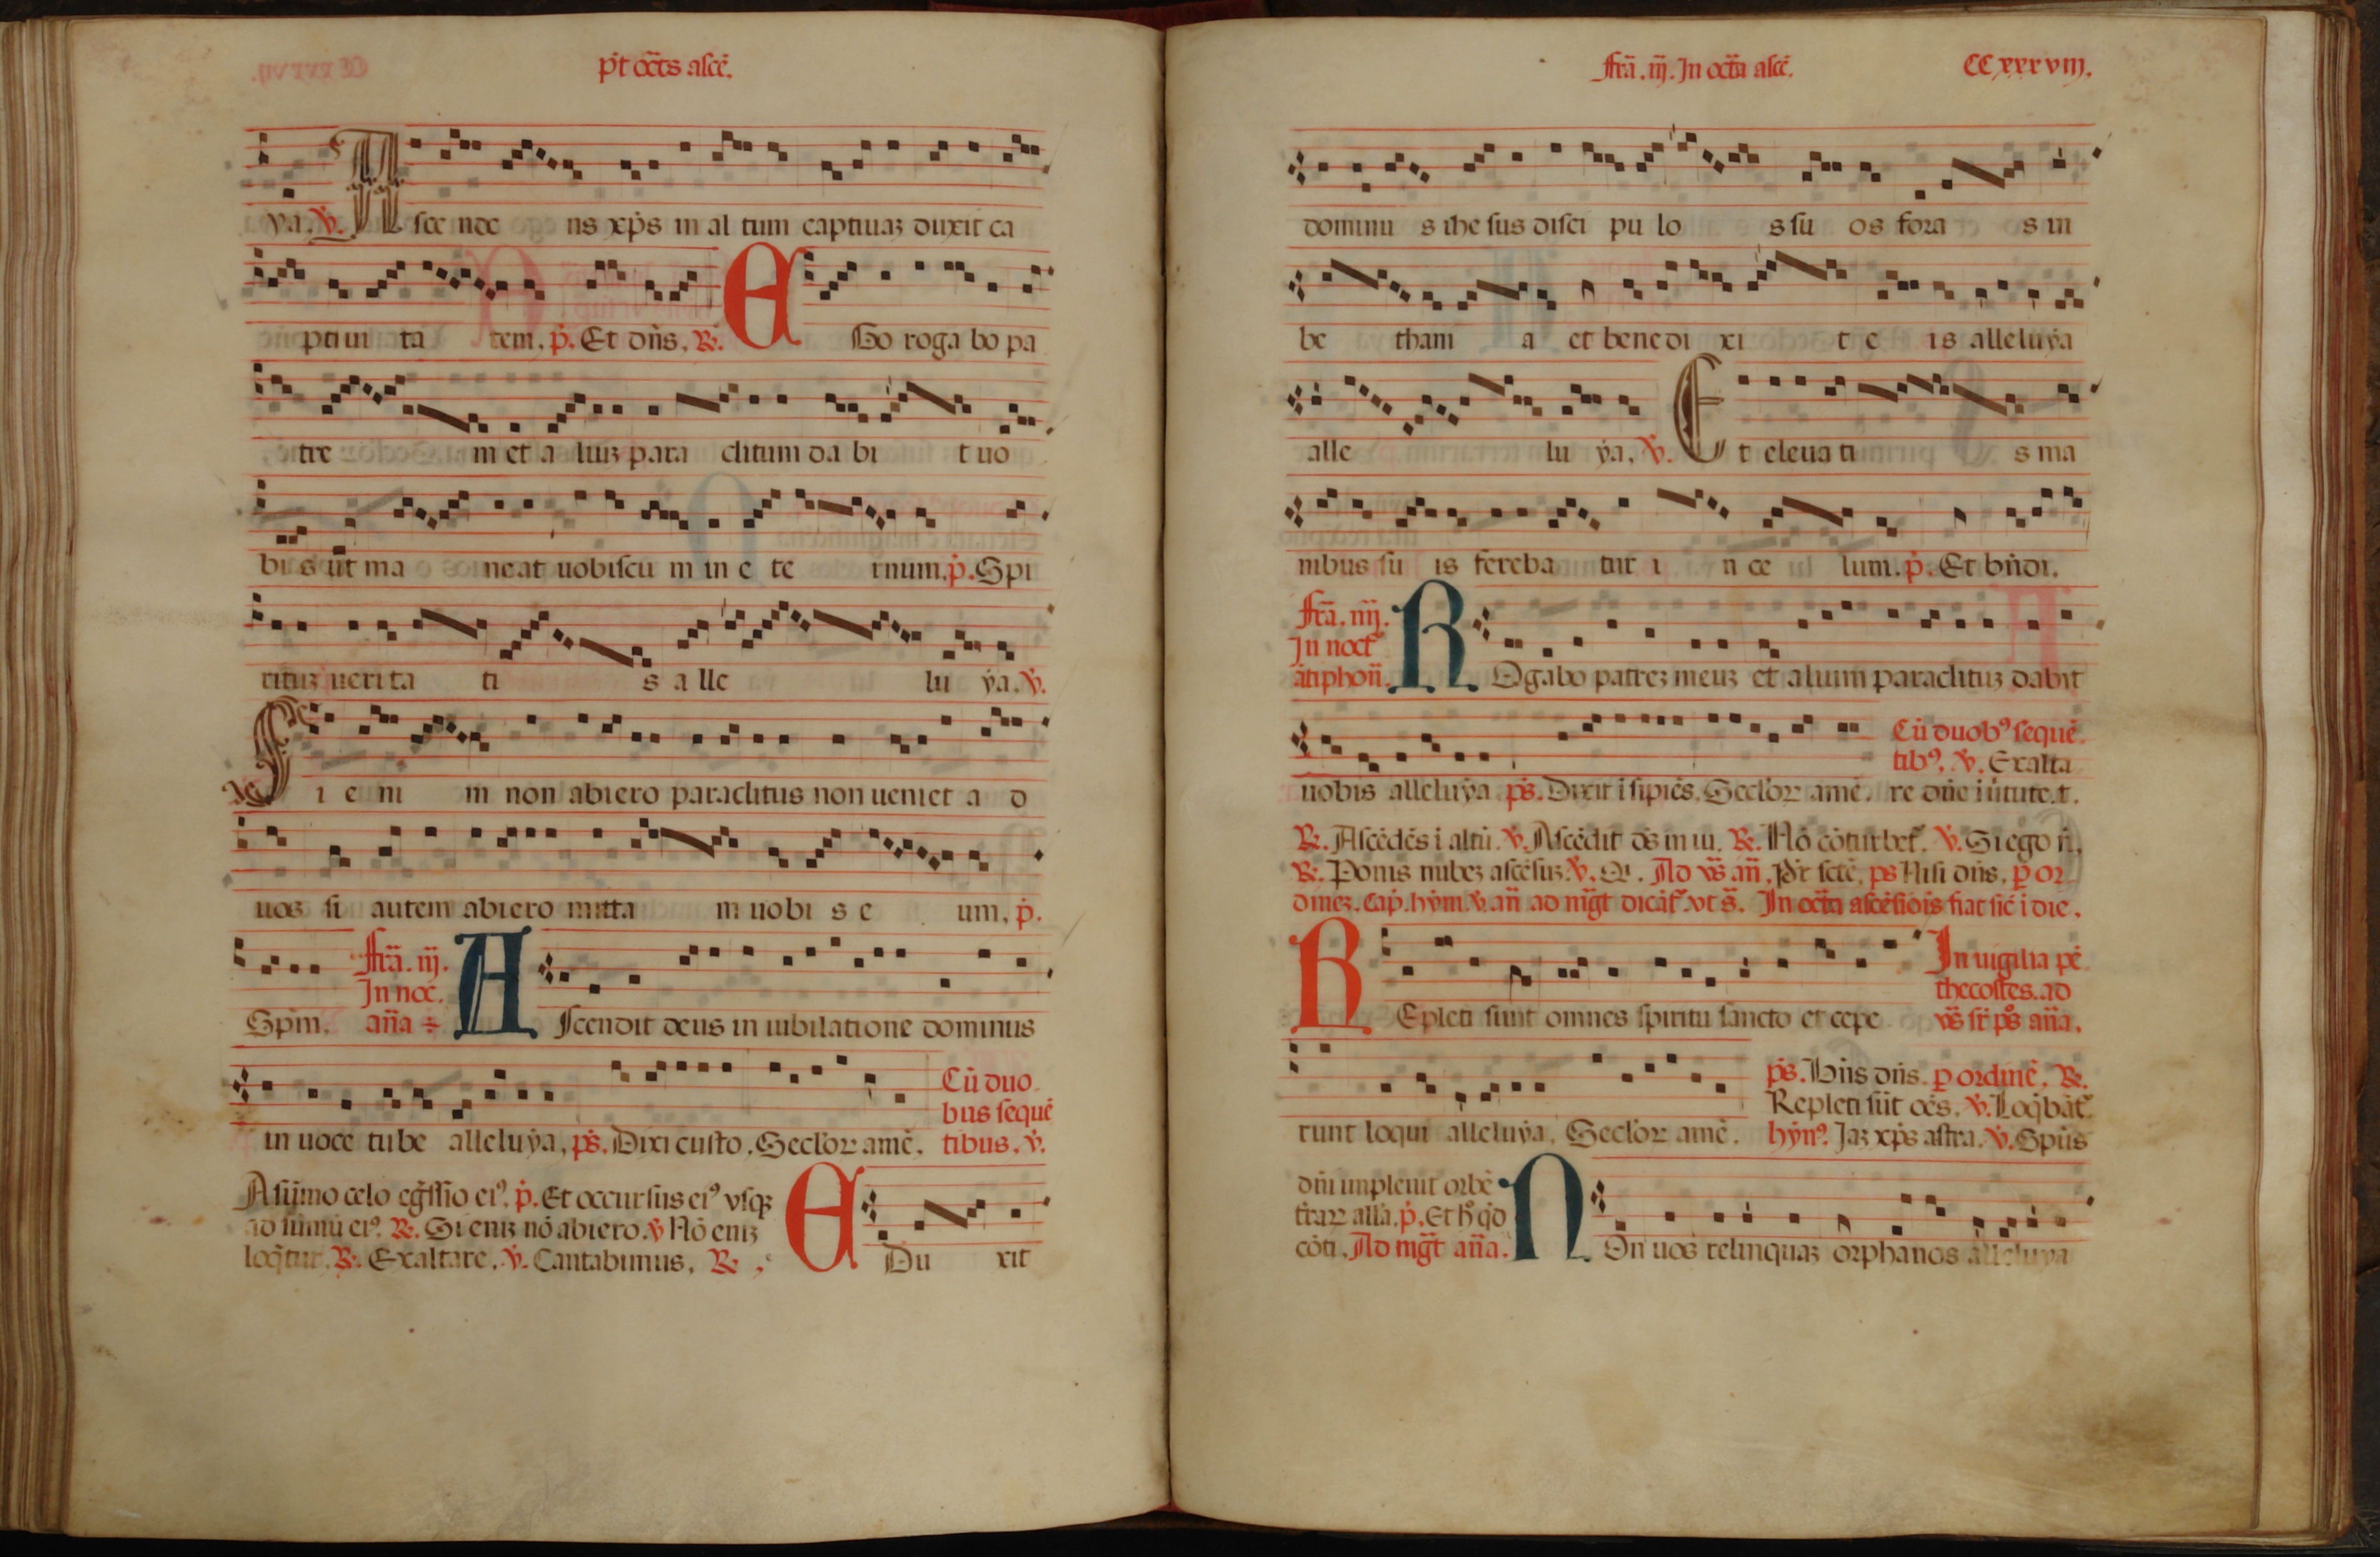 p̄t oct̄s ascē.
ya. ℣. A sce nde ns xp̄s in al tum captiuaʒ duxit ca
ptiui ta tem. p̄. Et dn̄s. ℟. E Go roga bo pa
tre m et a liuʒ para clitum da bi t uo
bis ut ma neat uobiscu m in e te rnum. p̄. Spi
rituʒ ueri ta ti s a lle lu ya. ℣.
S i e ni m non abiero paraclitus non ueniet a d
uos si autem abiero mitta m uobi s e um. p̄.
Spm̄.
Fr̄a. iij.
In noc̄.
an̄a
A Scendit deus in iubilatione dominus
in uoce tube alleluya. ps̄. Dixi custo. Seclor̄ amē.
Cū duo
bus sequē
tibus. ℣.
A sūmo celo eḡssio eiꝰ. p̄. Et occursus eiꝰ vsqʒ
ad sūmū eiꝰ. ℟. Si eniʒ nō abiero. ℣ Nō eniʒ
loq̄tur. ℟. Exaltare. ℣. Cantabimus. ℟.
E Du xit
Fr̄a. iij. In oct̄a ascē.
CCxxxviii.
dominu s ihe sus disci pu lo s su os fora s in
be tham a et benedi xi t e is alleluya
alle lu ya. ℣. E t eleua ti s ma
nibus su is fereba tur i n ce lum. p̄. Et bn̄di.
Fr̄a. iiij.
In noct̄
ātiphon̄.
R Ogabo patreʒ meuʒ et alium paraclituʒ dabit
uobis alleluya. ps̄. Dixit īsipiēs. Seclor̄ amē.
Cū duobꝰ sequē
tibꝰ. ℣. Exalta
re dn̄e ī ūtute.t.
℟. Ascēdēs ī altū. ℣. Ascēdit ds̄ in iu. ℟. Nō cōturbet̄. ℣. Si ego n̄.
℟. Ponis nubeʒ ascēsuʒ. ℣. Q. Ad vs̄ an̄. Pr̄ sctē. ps Nisi dn̄s. ꝑ or
dineʒ. Cap̄. hym̄. ℣. an̄ ad mḡt dicāt̄. vt s̄. In oct̄a ascēsiōis fiat sic̄ ī die.
R Epleti sunt omnes spiritu sancto et cepe
In uigilia pē
thecostes. ad
vs̄ sr̄ ps̄ an̄a.
runt loqui alleluya. Seclor̄ amē.
ps̄. Hn̄s dn̄s. ꝑ ordinē. ℟.
Repleti sūt oēs. ℣. Loq̄bāt̄.
hȳnꝰ. Jaʒ xp̄s astra. ℣. Spūs
dn̄i impleuit orbē
t̄rar̄ all̄a. p̄. Et h̄ q̄d
cōti. Ad mḡt an̄a.
N On uos relinquaʒ orphanos alleluya